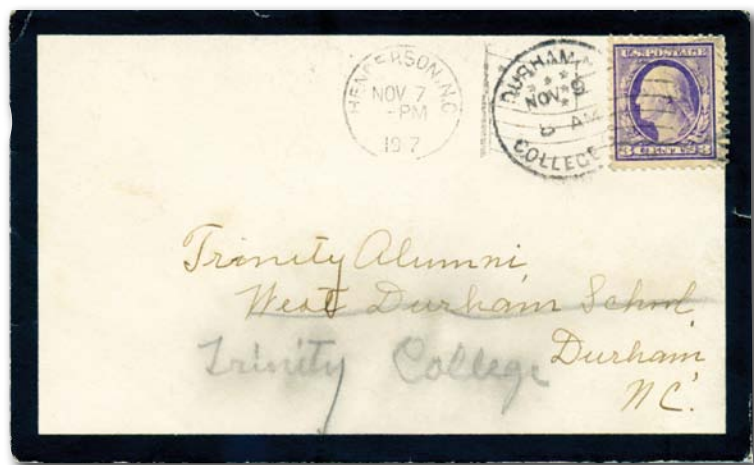 HENDERSON, N.C.
NOV 7
-PM
1917
DURHAM, N.
NOV 9
AM
COLLEGE
U.S. POSTAGE
3 CENTS 3
Trinity Alumni,
West Durham School
Trinity College
Durham
N.C.